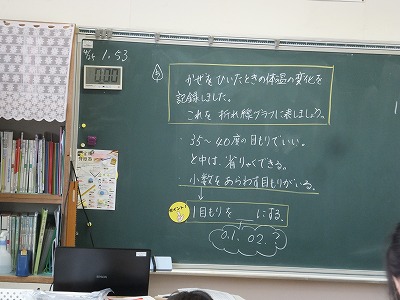 4/25 1.53
0:00
かぜをひいたときの体温の変化を
記録しました。
これを 折れ線グラフに表しましょう。
・35～40度の目もりでいい。
と中は、省りゃくできる。
・小数をあらわす目もりがいる。
ポイント!
1目もりを＿＿にする。
0.1、0.2、?